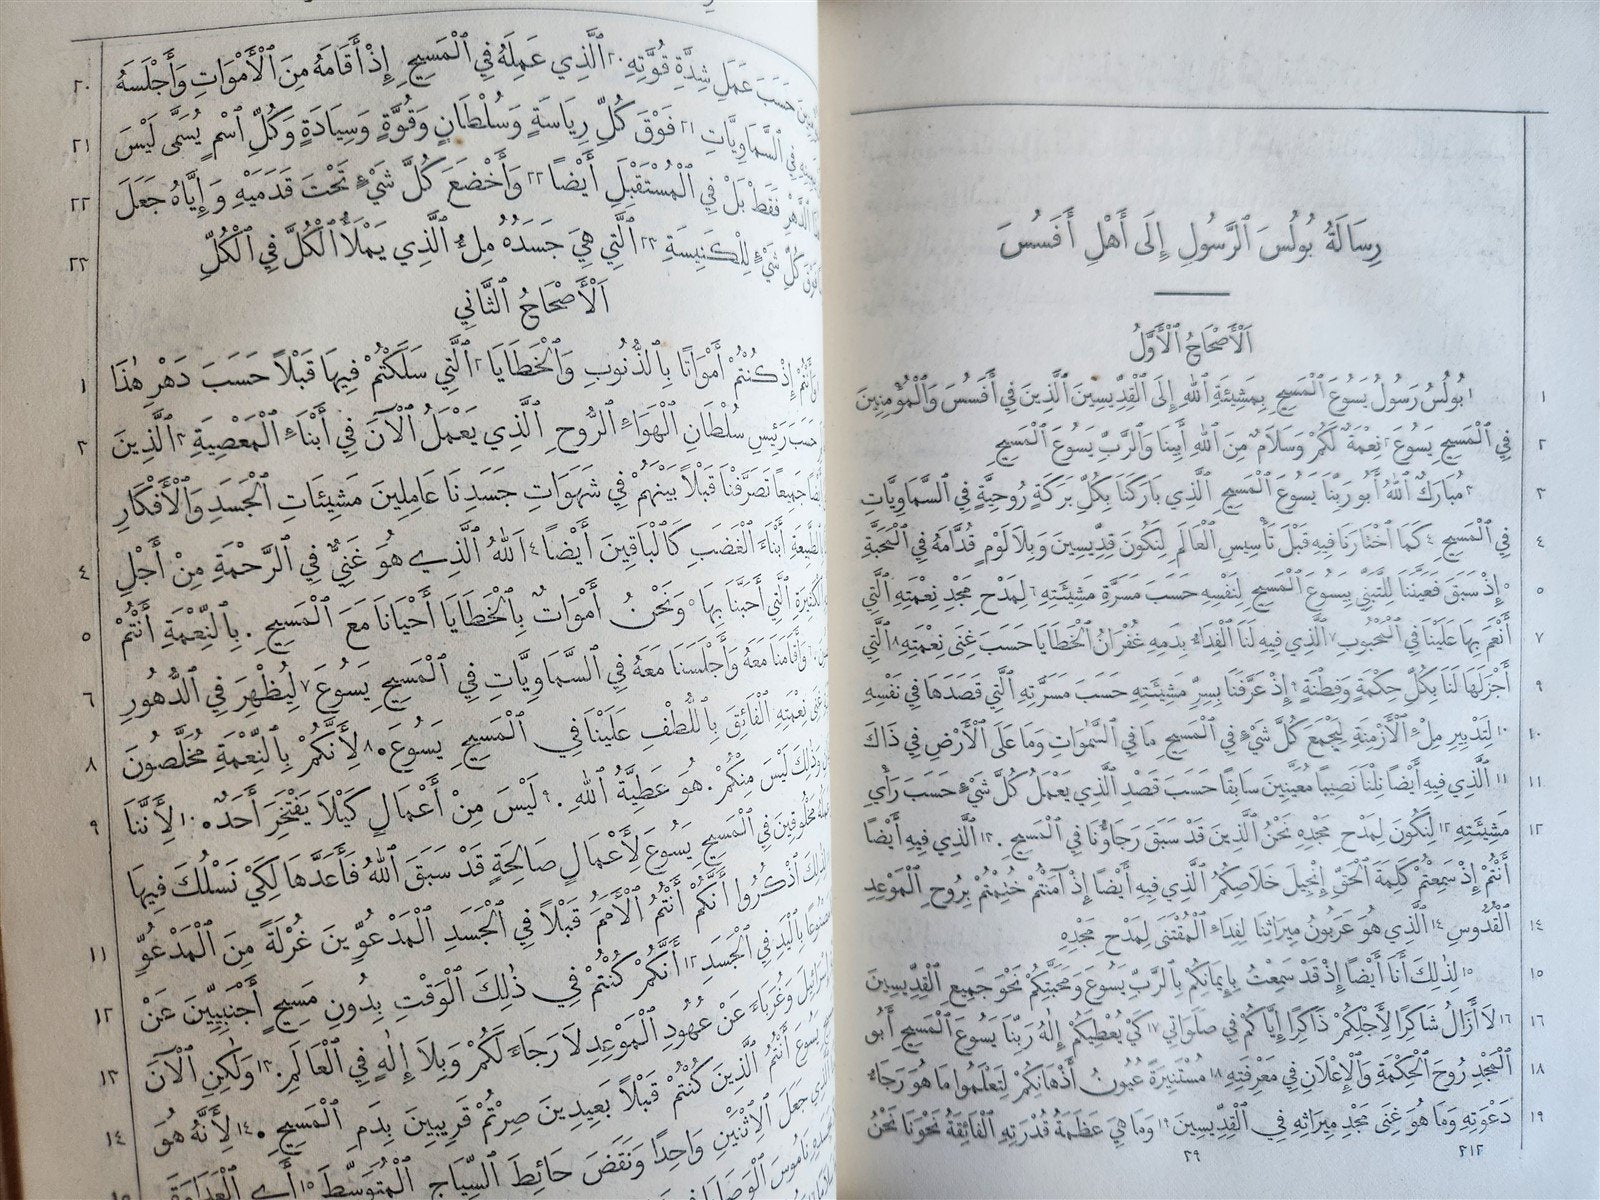 رِسَالَةُ بُولُسَ ٱلرَّسُولِ إِلَى أَهْلِ أَفَسُسَ
اَلْأَصْحَاحُ ٱلْأَوَّلُ
١ ١ بُولُسُ رَسُولُ يَسُوعَ ٱلْمَسِيحِ بِمَشِيئَةِ ٱللهِ إِلَى ٱلْقِدِّيسِينَ ٱلَّذِينَ فِي أَفَسُسَ وَٱلْمُؤْمِنِينَ
٢ فِي ٱلْمَسِيحِ يَسُوعَ ٢ نِعْمَةٌ لَكُمْ وَسَلَامٌ مِنَ ٱللهِ أَبِينَا وَٱلرَّبِّ يَسُوعَ ٱلْمَسِيحِ
٣ ٣ مُبَارَكٌ ٱللهُ أَبُو رَبِّنَا يَسُوعَ ٱلْمَسِيحِ ٱلَّذِي بَارَكَنَا بِكُلِّ بَرَكَةٍ رُوحِيَّةٍ فِي ٱلسَّمَاوِيَّاتِ
٤ فِي ٱلْمَسِيحِ ٤ كَمَا ٱخْتَارَنَا فِيهِ قَبْلَ تَأْسِيسِ ٱلْعَالَمِ لِنَكُونَ قِدِّيسِينَ وَبِلَا لَوْمٍ قُدَّامَهُ فِي ٱلْمَحَبَّةِ
٥ ٥ إِذْ سَبَقَ فَعَيَّنَنَا لِلتَّبَنِّي بِيَسُوعَ ٱلْمَسِيحِ لِنَفْسِهِ حَسَبَ مَسَرَّةِ مَشِيئَتِهِ ٦ لِمَدْحِ مَجْدِ نِعْمَتِهِ ٱلَّتِي
٧ أَنْعَمَ بِهَا عَلَيْنَا فِي ٱلْمَحْبُوبِ ٧ ٱلَّذِي فِيهِ لَنَا ٱلْفِدَاءُ بِدَمِهِ غُفْرَانُ ٱلْخَطَايَا حَسَبَ غِنَى نِعْمَتِهِ ٨ ٱلَّتِي
٩ أَجْزَلَهَا لَنَا بِكُلِّ حِكْمَةٍ وَفِطْنَةٍ ٩ إِذْ عَرَّفَنَا بِسِرِّ مَشِيئَتِهِ حَسَبَ مَسَرَّتِهِ ٱلَّتِي قَصَدَهَا فِي نَفْسِهِ
١٠ ١٠ لِتَدْبِيرِ مِلْءِ ٱلْأَزْمِنَةِ لِيَجْمَعَ كُلَّ شَيْءٍ فِي ٱلْمَسِيحِ مَا فِي ٱلسَّمَوَاتِ وَمَا عَلَى ٱلْأَرْضِ فِي ذَاكَ
١١ ١١ ٱلَّذِي فِيهِ أَيْضًا نِلْنَا نَصِيبًا مُعَيَّنِينَ سَابِقًا حَسَبَ قَصْدِ ٱلَّذِي يَعْمَلُ كُلَّ شَيْءٍ حَسَبَ رَأْيِ
١٢ مَشِيئَتِهِ ١٢ لِنَكُونَ لِمَدْحِ مَجْدِهِ نَحْنُ ٱلَّذِينَ قَدْ سَبَقَ رَجَاؤُنَا فِي ٱلْمَسِيحِ. ١٣ ٱلَّذِي فِيهِ أَيْضًا
أَنْتُمْ إِذْ سَمِعْتُمْ كَلِمَةَ ٱلْحَقِّ إِنْجِيلَ خَلَاصِكُمُ ٱلَّذِي فِيهِ أَيْضًا إِذْ آمَنْتُمْ خُتِمْتُمْ بِرُوحِ ٱلْمَوْعِدِ
١٤ ٱلْقُدُّوسِ ١٤ ٱلَّذِي هُوَ عَرَبُونُ مِيرَاثِنَا لِفِدَاءِ ٱلْمُقْتَنَى لِمَدْحِ مَجْدِهِ
١٥ ١٥ لِذٰلِكَ أَنَا أَيْضًا إِذْ قَدْ سَمِعْتُ بِإِيمَانِكُمْ بِٱلرَّبِّ يَسُوعَ وَمَحَبَّتِكُمْ نَحْوَ جَمِيعِ ٱلْقِدِّيسِينَ
١٦ ١٦ لَا أَزَالُ شَاكِرًا لِأَجْلِكُمْ ذَاكِرًا إِيَّاكُمْ فِي صَلَوَاتِي ١٧ كَيْ يُعْطِيَكُمْ إِلٰهُ رَبِّنَا يَسُوعَ ٱلْمَسِيحِ أَبُو
١٨ ٱلْمَجْدِ رُوحَ ٱلْحِكْمَةِ وَٱلْإِعْلَانِ فِي مَعْرِفَتِهِ ١٨ مُسْتَنِيرَةً عُيُونُ أَذْهَانِكُمْ لِتَعْلَمُوا مَا هُوَ رَجَاءُ
١٩ دَعْوَتِهِ وَمَا هُوَ غِنَى مَجْدِ مِيرَاثِهِ فِي ٱلْقِدِّيسِينَ ١٩ وَمَا هِيَ عَظَمَةُ قُدْرَتِهِ ٱلْفَائِقَةُ نَحْوَنَا نَحْنُ
٣١٢ ٢٩
٢٠ حَسَبَ عَمَلِ شِدَّةِ قُوَّتِهِ ٢٠ ٱلَّذِي عَمِلَهُ فِي ٱلْمَسِيحِ إِذْ أَقَامَهُ مِنَ ٱلْأَمْوَاتِ وَأَجْلَسَهُ
٢١ فِي ٱلسَّمَاوِيَّاتِ ٢١ فَوْقَ كُلِّ رِيَاسَةٍ وَسُلْطَانٍ وَقُوَّةٍ وَسِيَادَةٍ وَكُلِّ ٱسْمٍ يُسَمَّى لَيْسَ
٢٢ ٱلدَّهْرِ فَقَطْ بَلْ فِي ٱلْمُسْتَقْبَلِ أَيْضًا ٢٢ وَأَخْضَعَ كُلَّ شَيْءٍ تَحْتَ قَدَمَيْهِ وَإِيَّاهُ جَعَلَ
٢٣ فَوْقَ كُلِّ شَيْءٍ لِلْكَنِيسَةِ ٢٣ ٱلَّتِي هِيَ جَسَدُهُ مِلْءُ ٱلَّذِي يَمْلَأُ ٱلْكُلَّ فِي ٱلْكُلِّ
اَلْأَصْحَاحُ ٱلثَّانِي
١ أَنْتُمْ إِذْ كُنْتُمْ أَمْوَاتًا بِٱلذُّنُوبِ وَٱلْخَطَايَا ٢ ٱلَّتِي سَلَكْتُمْ فِيهَا قَبْلًا حَسَبَ دَهْرِ هٰذَا
٢ حَسَبَ رَئِيسِ سُلْطَانِ ٱلْهَوَاءِ ٱلرُّوحِ ٱلَّذِي يَعْمَلُ ٱلْآنَ فِي أَبْنَاءِ ٱلْمَعْصِيَةِ ٣ ٱلَّذِينَ
جَمِيعًا تَصَرَّفْنَا قَبْلًا بَيْنَهُمْ فِي شَهَوَاتِ جَسَدِنَا عَامِلِينَ مَشِيئَاتِ ٱلْجَسَدِ وَٱلْأَفْكَارِ
٤ أَبْنَاءَ ٱلْغَضَبِ كَٱلْبَاقِينَ أَيْضًا ٤ اَللهُ ٱلَّذِي هُوَ غَنِيٌّ فِي ٱلرَّحْمَةِ مِنْ أَجْلِ
٥ ٱلْكَثِيرَةِ ٱلَّتِي أَحَبَّنَا بِهَا ٥ وَنَحْنُ أَمْوَاتٌ بِٱلْخَطَايَا أَحْيَانَا مَعَ ٱلْمَسِيحِ. بِٱلنِّعْمَةِ أَنْتُمْ
٦ ٦ وَأَقَامَنَا مَعَهُ وَأَجْلَسَنَا مَعَهُ فِي ٱلسَّمَاوِيَّاتِ فِي ٱلْمَسِيحِ يَسُوعَ ٧ لِيُظْهِرَ فِي ٱلدُّهُورِ
٨ غِنَى نِعْمَتِهِ ٱلْفَائِقَ بِٱللُّطْفِ عَلَيْنَا فِي ٱلْمَسِيحِ يَسُوعَ. ٨ لِأَنَّكُمْ بِٱلنِّعْمَةِ مُخَلَّصُونَ
٩ وَذٰلِكَ لَيْسَ مِنْكُمْ. هُوَ عَطِيَّةُ ٱللهِ. ٩ لَيْسَ مِنْ أَعْمَالٍ كَيْلَا يَفْتَخِرَ أَحَدٌ. ١٠ لِأَنَّنَا
مَخْلُوقِينَ فِي ٱلْمَسِيحِ يَسُوعَ لِأَعْمَالٍ صَالِحَةٍ قَدْ سَبَقَ ٱللهُ فَأَعَدَّهَا لِكَيْ نَسْلُكَ فِيهَا
١١ ٱذْكُرُوا أَنَّكُمْ أَنْتُمُ ٱلْأُمَمَ قَبْلًا فِي ٱلْجَسَدِ ٱلْمَدْعُوِّينَ غُرْلَةً مِنَ ٱلْمَدْعُوِّ
١٢ بِٱلْيَدِ فِي ٱلْجَسَدِ ١٢ أَنَّكُمْ كُنْتُمْ فِي ذٰلِكَ ٱلْوَقْتِ بِدُونِ مَسِيحٍ أَجْنَبِيِّينَ عَنْ
١٣ إِسْرَائِيلَ وَغُرَبَاءَ عَنْ عُهُودِ ٱلْمَوْعِدِ لَا رَجَاءَ لَكُمْ وَبِلَا إِلٰهٍ فِي ٱلْعَالَمِ. ١٣ وَلٰكِنِ ٱلْآنَ
١٤ يَسُوعَ أَنْتُمُ ٱلَّذِينَ كُنْتُمْ قَبْلًا بَعِيدِينَ صِرْتُمْ قَرِيبِينَ بِدَمِ ٱلْمَسِيحِ. ١٤ لِأَنَّهُ هُوَ
جَعَلَ ٱلِٱثْنَيْنِ وَاحِدًا وَنَقَضَ حَائِطَ ٱلسِّيَاجِ ٱلْمُتَوَسِّطَ ١٥ أَيِ ٱلْعَدَاوَةَ
نَامُوسَ ٱلْوَصَايَا